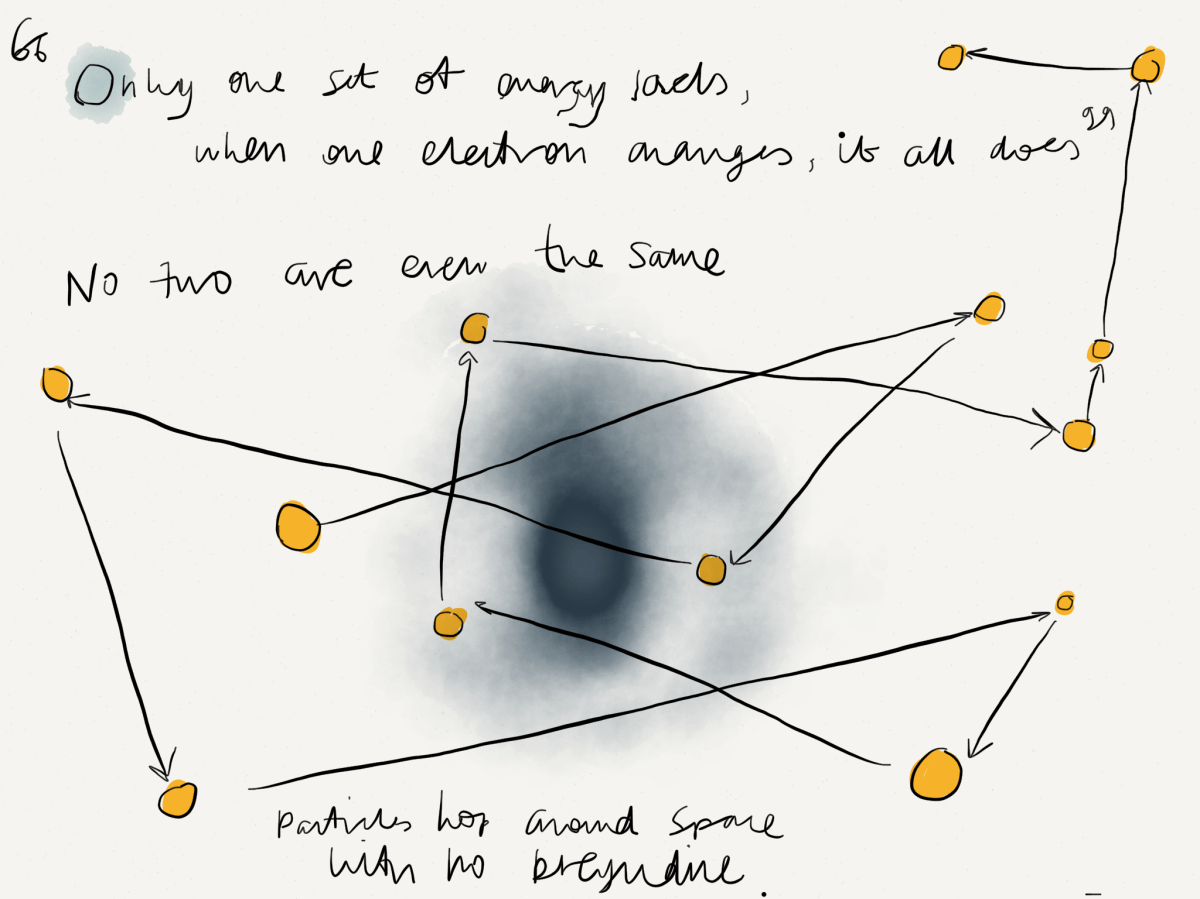 “Only one set of energy levels,
when one electron changes, it all does”
No two are even the same
Particles hop around space
with no prejudice.